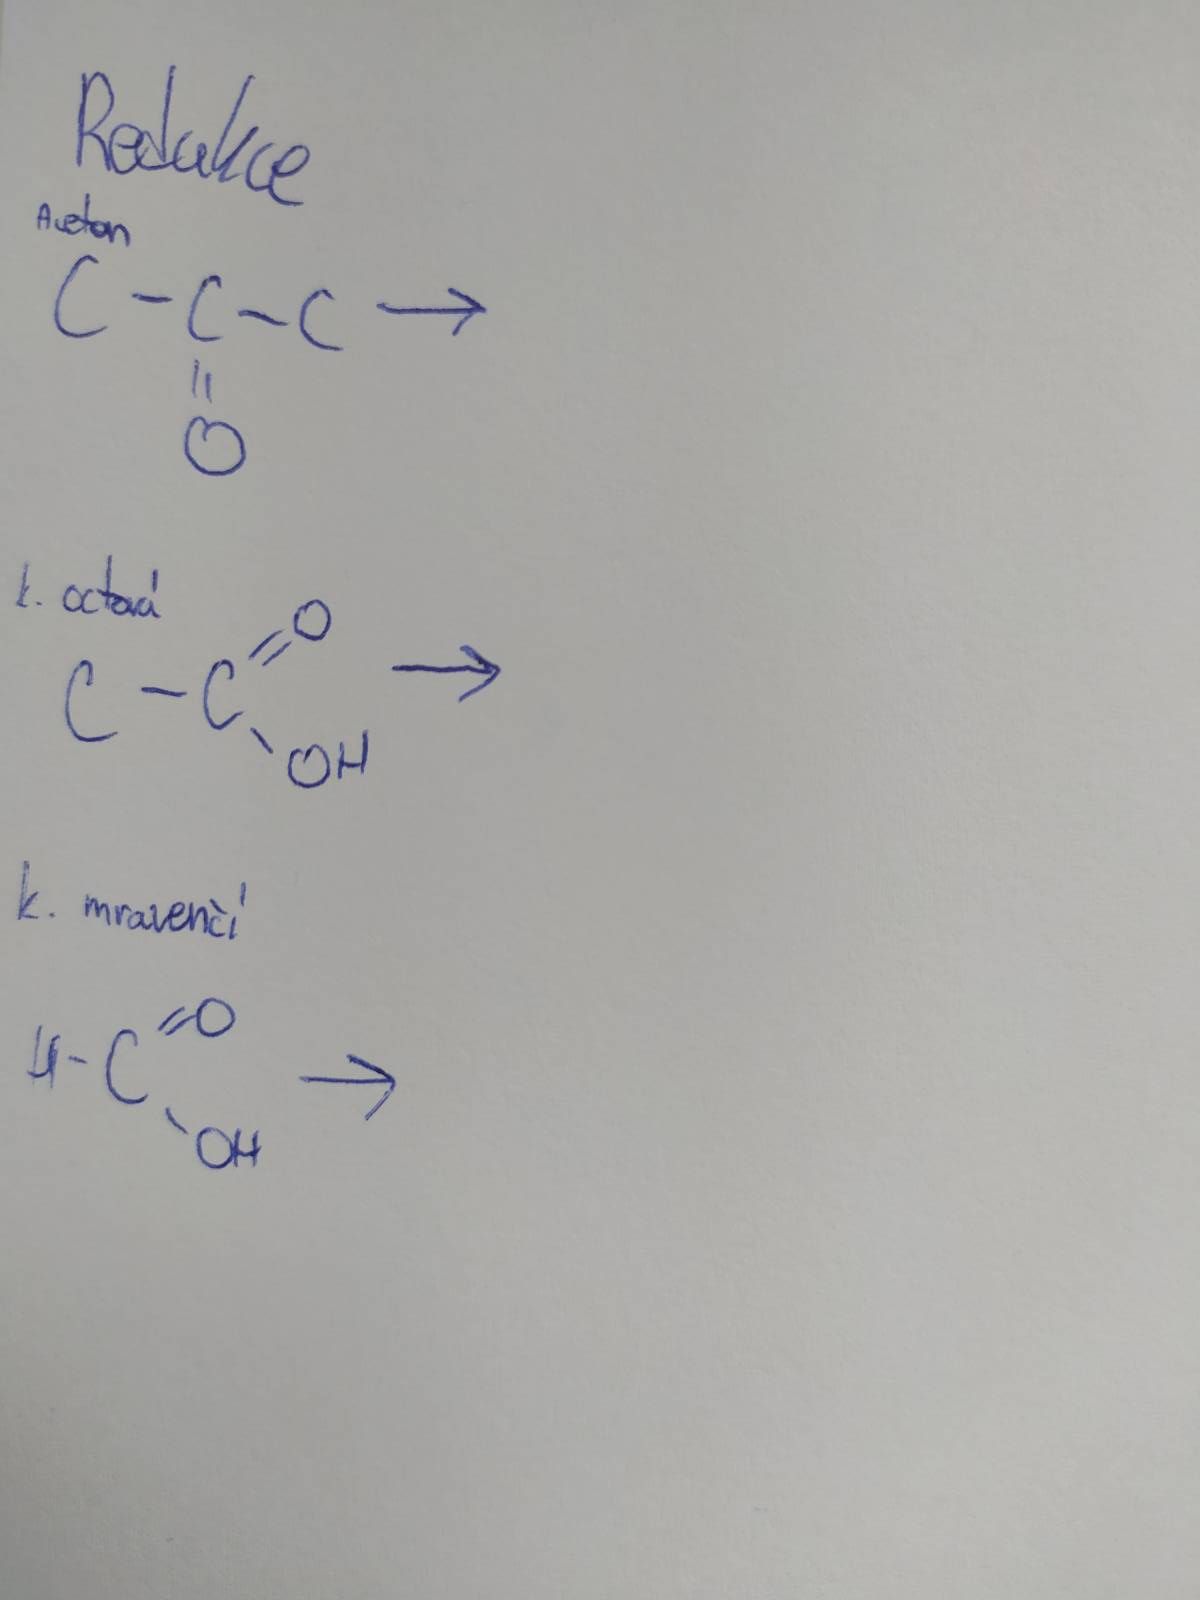 Redukce
Aceton
C - C - C →
||
O
k. octová
O
C - C = →
OH
k. mravenčí
=O
H - C →
OH